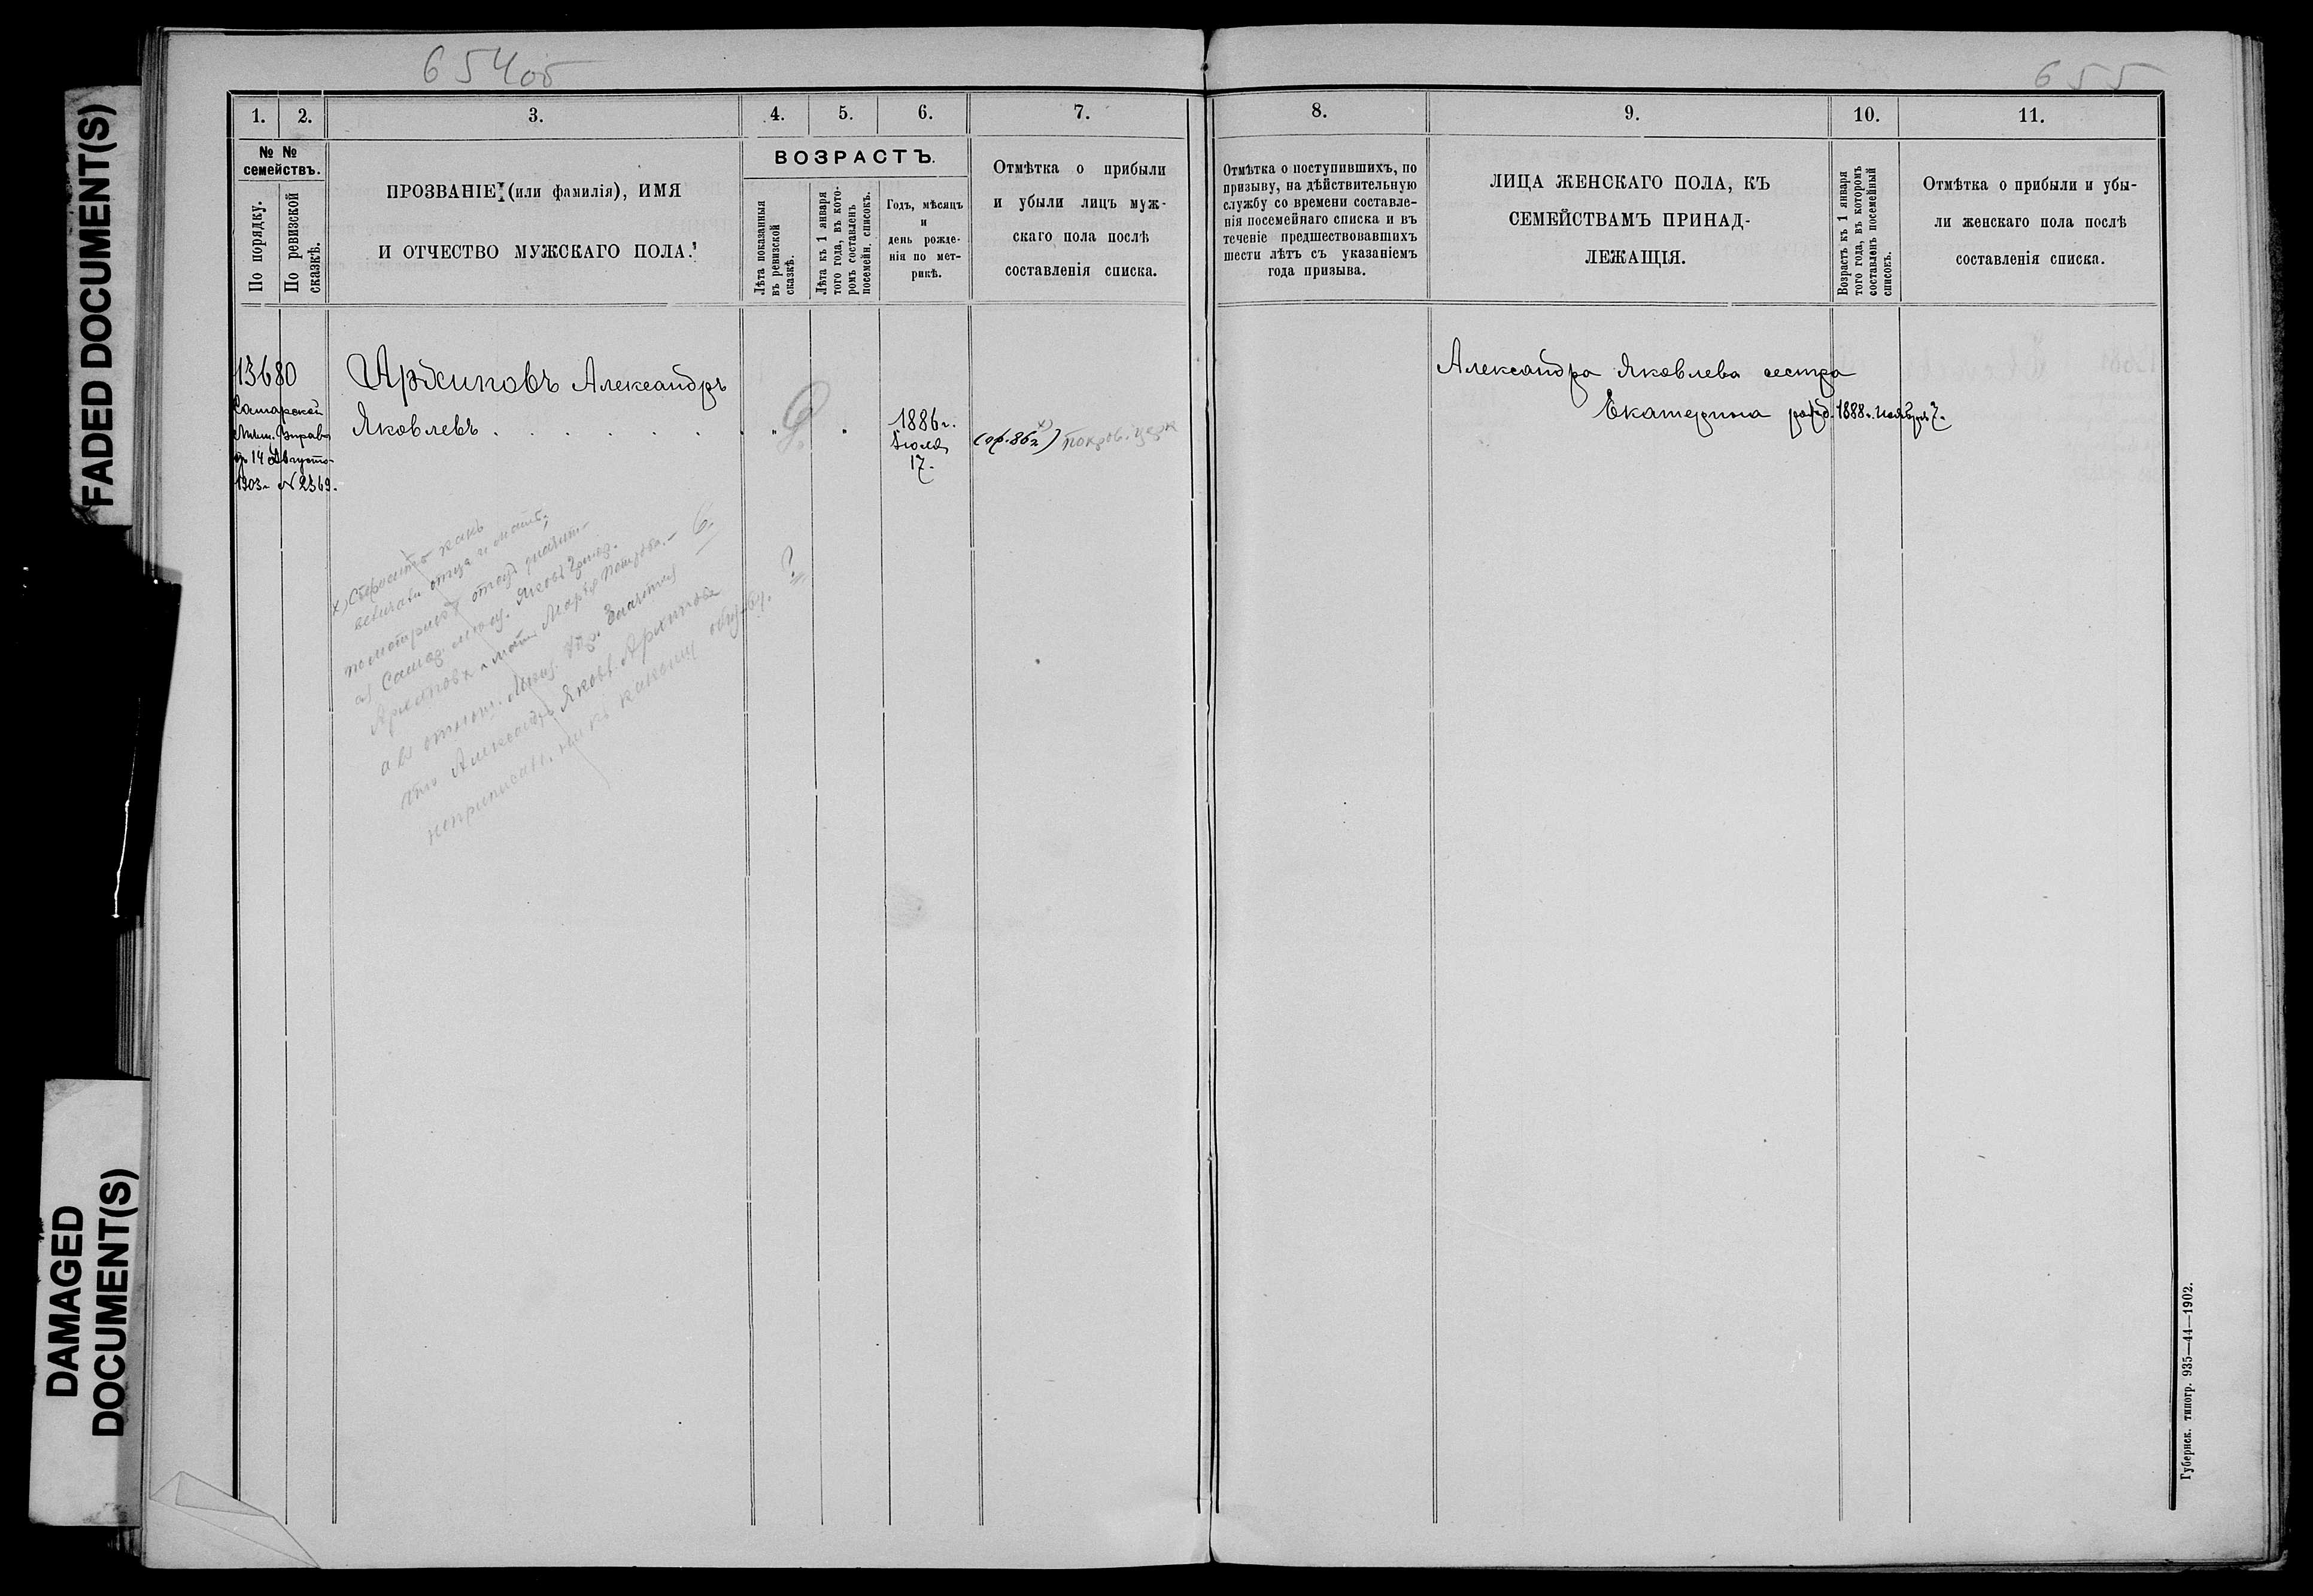 FADED DOCUMENT(S)
DAMAGED
DOCUMENT(S)
654об
1. 2. 3. 4. 5. 6. 7.
№ №
семействъ.
По порядку.
По ревизской
сказкѣ.
ПРОЗВАНІЕ (или фамилія), ИМЯ
И ОТЧЕСТВО МУЖСКАГО ПОЛА.
ВОЗРАСТЪ.
Лѣта показанныя
въ ревизской
сказкѣ.
Лѣта къ 1 января
того года, въ кото-
ромъ составленъ
посемейн. списокъ.
Годъ, мѣсяцъ
и
день рожде-
нія по мет-
рикѣ.
Отмѣтка о прибыли
и убыли лицъ муж-
скаго пола послѣ
составленія списка.
13680
Самарской
Мѣщ. Управы
14 Августа
1903 г. № 2369.
Архиповъ Александръ
Яковлевъ . . . . . . .
1886 г.
Іюля
17.
покров. церк
х) Спросить какъ
величали отца и мать,
Самар. мѣщ. Яковъ
Архиповъ и мать Марья Петрова.
Александръ Яковл. Архиповъ
655
8. 9. 10. 11.
Отмѣтка о поступившихъ, по
призыву, на дѣйствительную
службу со времени составле-
нія посемейнаго списка и въ
теченіе предшествовавшихъ
шести лѣтъ съ указаніемъ
года призыва.
ЛИЦА ЖЕНСКАГО ПОЛА, КЪ
СЕМЕЙСТВАМЪ ПРИНАД-
ЛЕЖАЩІЯ.
Возрастъ къ 1 января
того года, въ которомъ
составленъ посемейный
списокъ.
Отмѣтка о прибыли и убы-
ли женскаго пола послѣ
составленія списка.
Александра Яковлева сестра
Екатерина рожд. 1888 г. ноября 7.
Губернск. типогр. 935—44—1902.